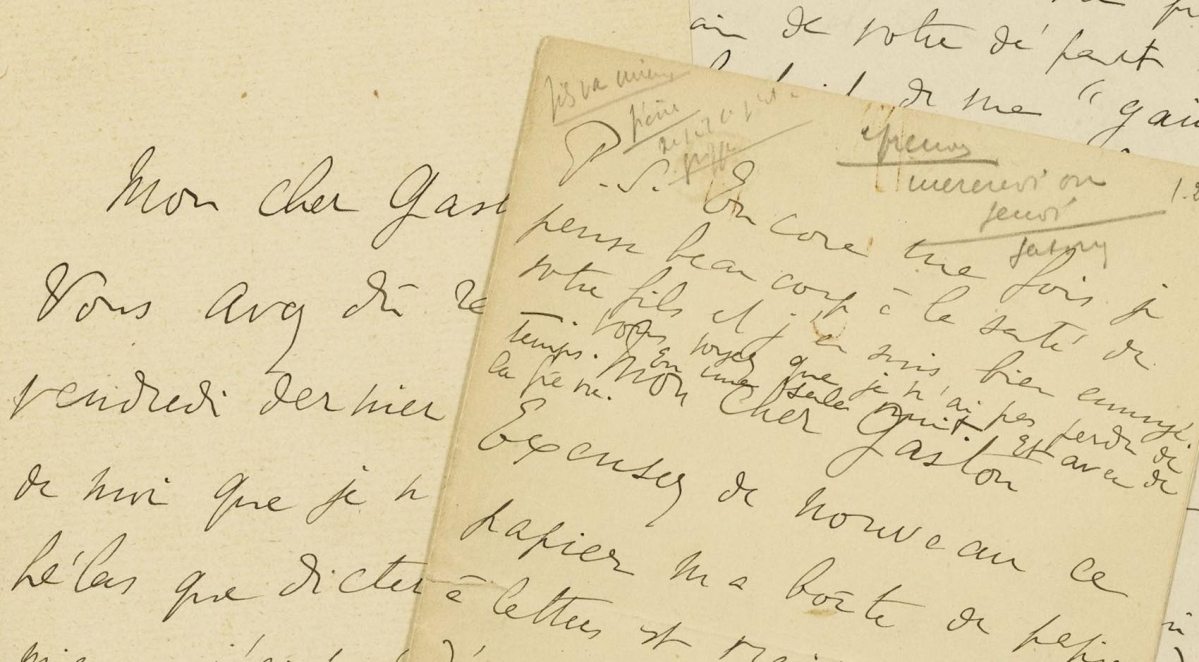 Mon cher Gast
Vous avez dû re
vendredi dernier
de moi que je n
hélas que dicter
de votre départ
de me "gai
épreuves
mercredi ou
jeudi
P.S. Encore une fois je
pense beaucoup à la santé de
votre fils et j'en suis bien ennuyé.
Vous voyez que je n'ai pas perdu de
temps. En une seule nuit et avec de
la fièvre.
Mon cher Gaston
Excusez de nouveau ce
papier ma boîte de papi
à lettres est